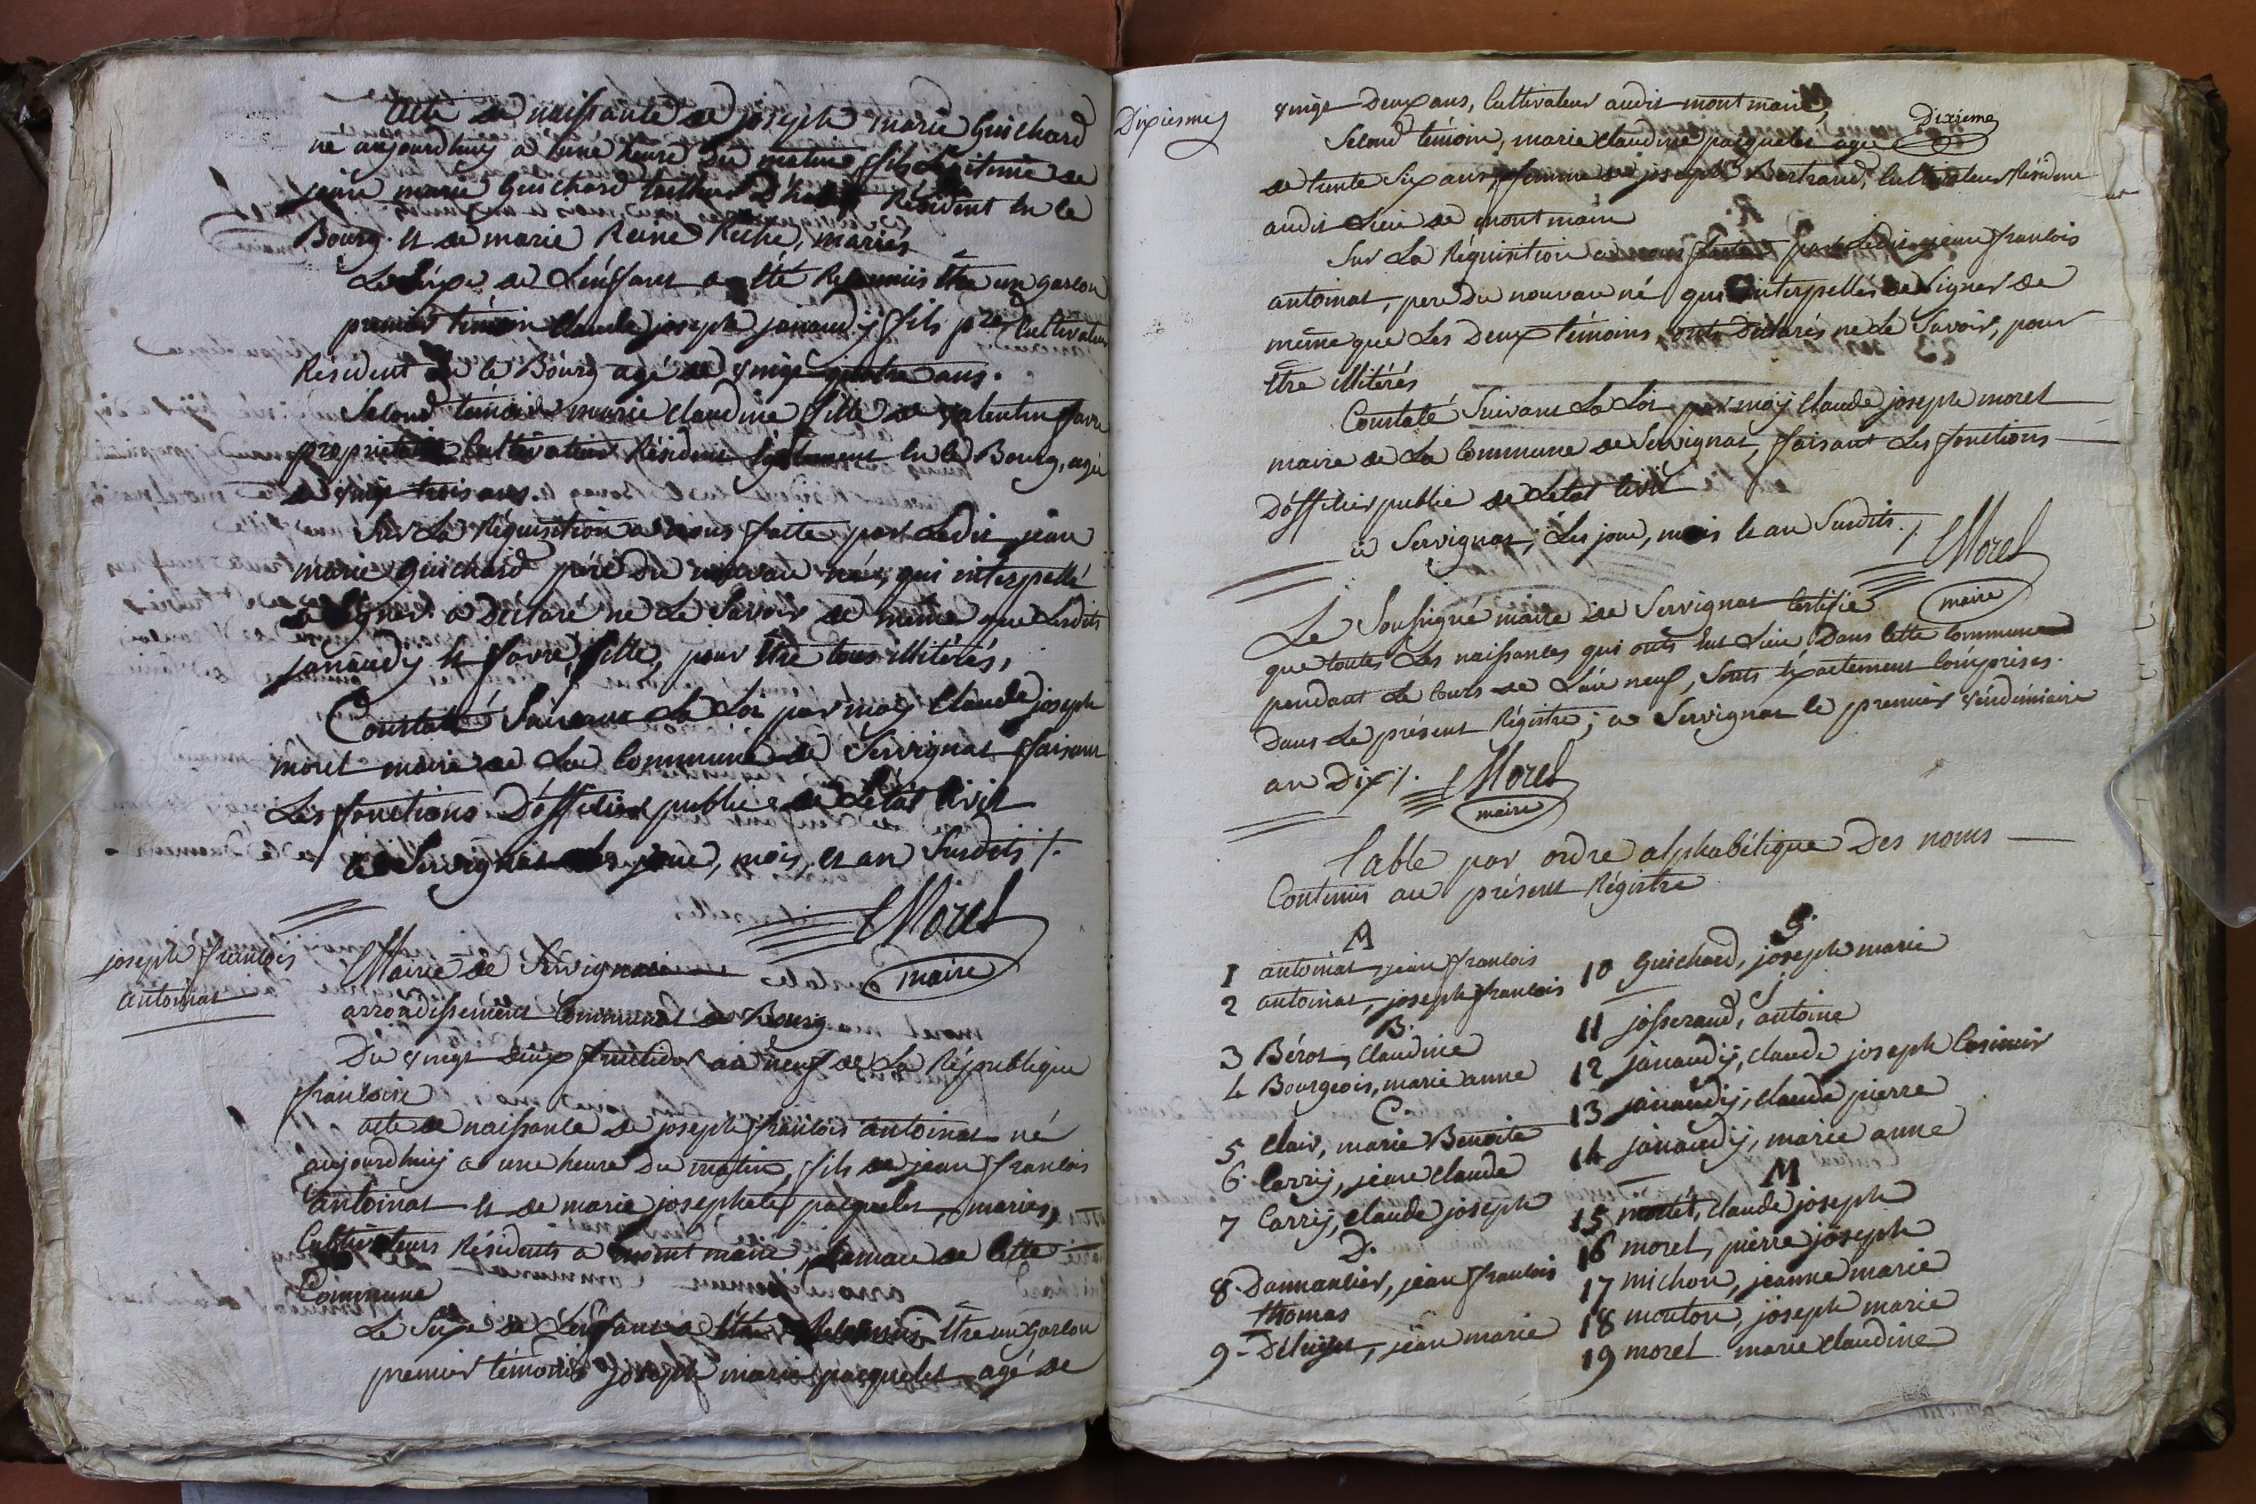 Acte de naissance de joseph marie Guichard
né aujourdhuy a lune heure du matin fils Legitime de
jean marie Guichard tailleur D'habits Résident en le
Bourg et de marie Reine Reche, mariés
Le Séxe de L'enfant a été Reconnus être un garcon
premier témoin Claude joseph janaudy fils pre Cultivateur
Résident en le Bourg agé de vingt quatre ans.
Second témoin marie claudine fille de valentin favre
proprietaire Cultivateur Résident également en le Bourg, agée
de vingt trois ans
Sur La Réquisition a nous faite par Ledit jean
marie Guichard père du nouveau née, qui interpellé
de signer a Déclaré ne Le Savoir de même que Lesdits
janaudy et favre, fille, pour être tous illitérés,
Constaté Suivant La Loi par moy Claude joseph
morel maire de La Commune de Servignat faisant
Les fonctions D'officier public de Létat Civil
à Servignat Les jour, mois et an Susdits ./.
CMorel
maire
joseph francois
antoinat
Mairie de Servignat
arrondissement Communal de Bourg
Du vingt deux fructidor an neuf de La République
francoise
acte de naissance de joseph francois antoinat né
aujourdhuy a une heure du matin, fils de jean francois
antoinat et de marie josephete pacquelet, mariés,
Cultivateurs Résidents a mont main, hameau de cette
Commune
Le Sexe de L'enfant a été Reconnus être un garcon
premier témoin joseph marie pacquelet agé de
Dixiesme
vingt Deux ans, Cultivateur audit mont main,
Dixieme
Second témoin, marie claudine pacquelet agée
de trente Six ans, femme de joseph Bertrand, Cultivateur Résident
audit Lieu de mont main
Sur La Réquisition a nous faite par Ledit jean francois
antoinat, pere du nouveau né qui interpellés de Signer de
même que Les Deux témoins, onts Déclarés ne Le Savoir, pour
être illitérés
Constaté Suivant La Loi par moy Claude joseph morel
maire de La Commune de Servignat, faisant Les fonctions
D'officier public de Létat Civil
à Servignat, Les jour, mois et an Susdits ./.
CMorel
maire
Le Soussigné maire de Servignat Certifie
que toutes Les naissances qui onts eut Lieu, Dans cette Commune
pendant Le Cours de L'an neuf, Sonts Exactement Comprises
Dans Le présent Régistre; a Servignat le premier vendémiaire
an Dix ./.
CMorel
maire
Table par ordre alphabétique Des noms
Contenus au présent Régistre
A
1 antoinat, jean francois
2 antoinat, joseph francois
B.
3 Bérot, Claudine
4 Bourgeois, marie anne
C.
5 Clair, marie Benoite
6. Carry, jean claude
7 Carry, claude joseph
D.
8. Dannancier, jean francois
thomas
9 - Deluyat, jean marie
G.
10 Guichard, joseph marie
J
11 josserand, antoine
12 janaudy, claude joseph Casimir
13 janaudy, claude pierre
14 janaudy, marie anne
M
15 morel, claude joseph
16 morel, pierre joseph
17 michon, jeanne marie
18 mouton, joseph marie
19 morel marie claudine